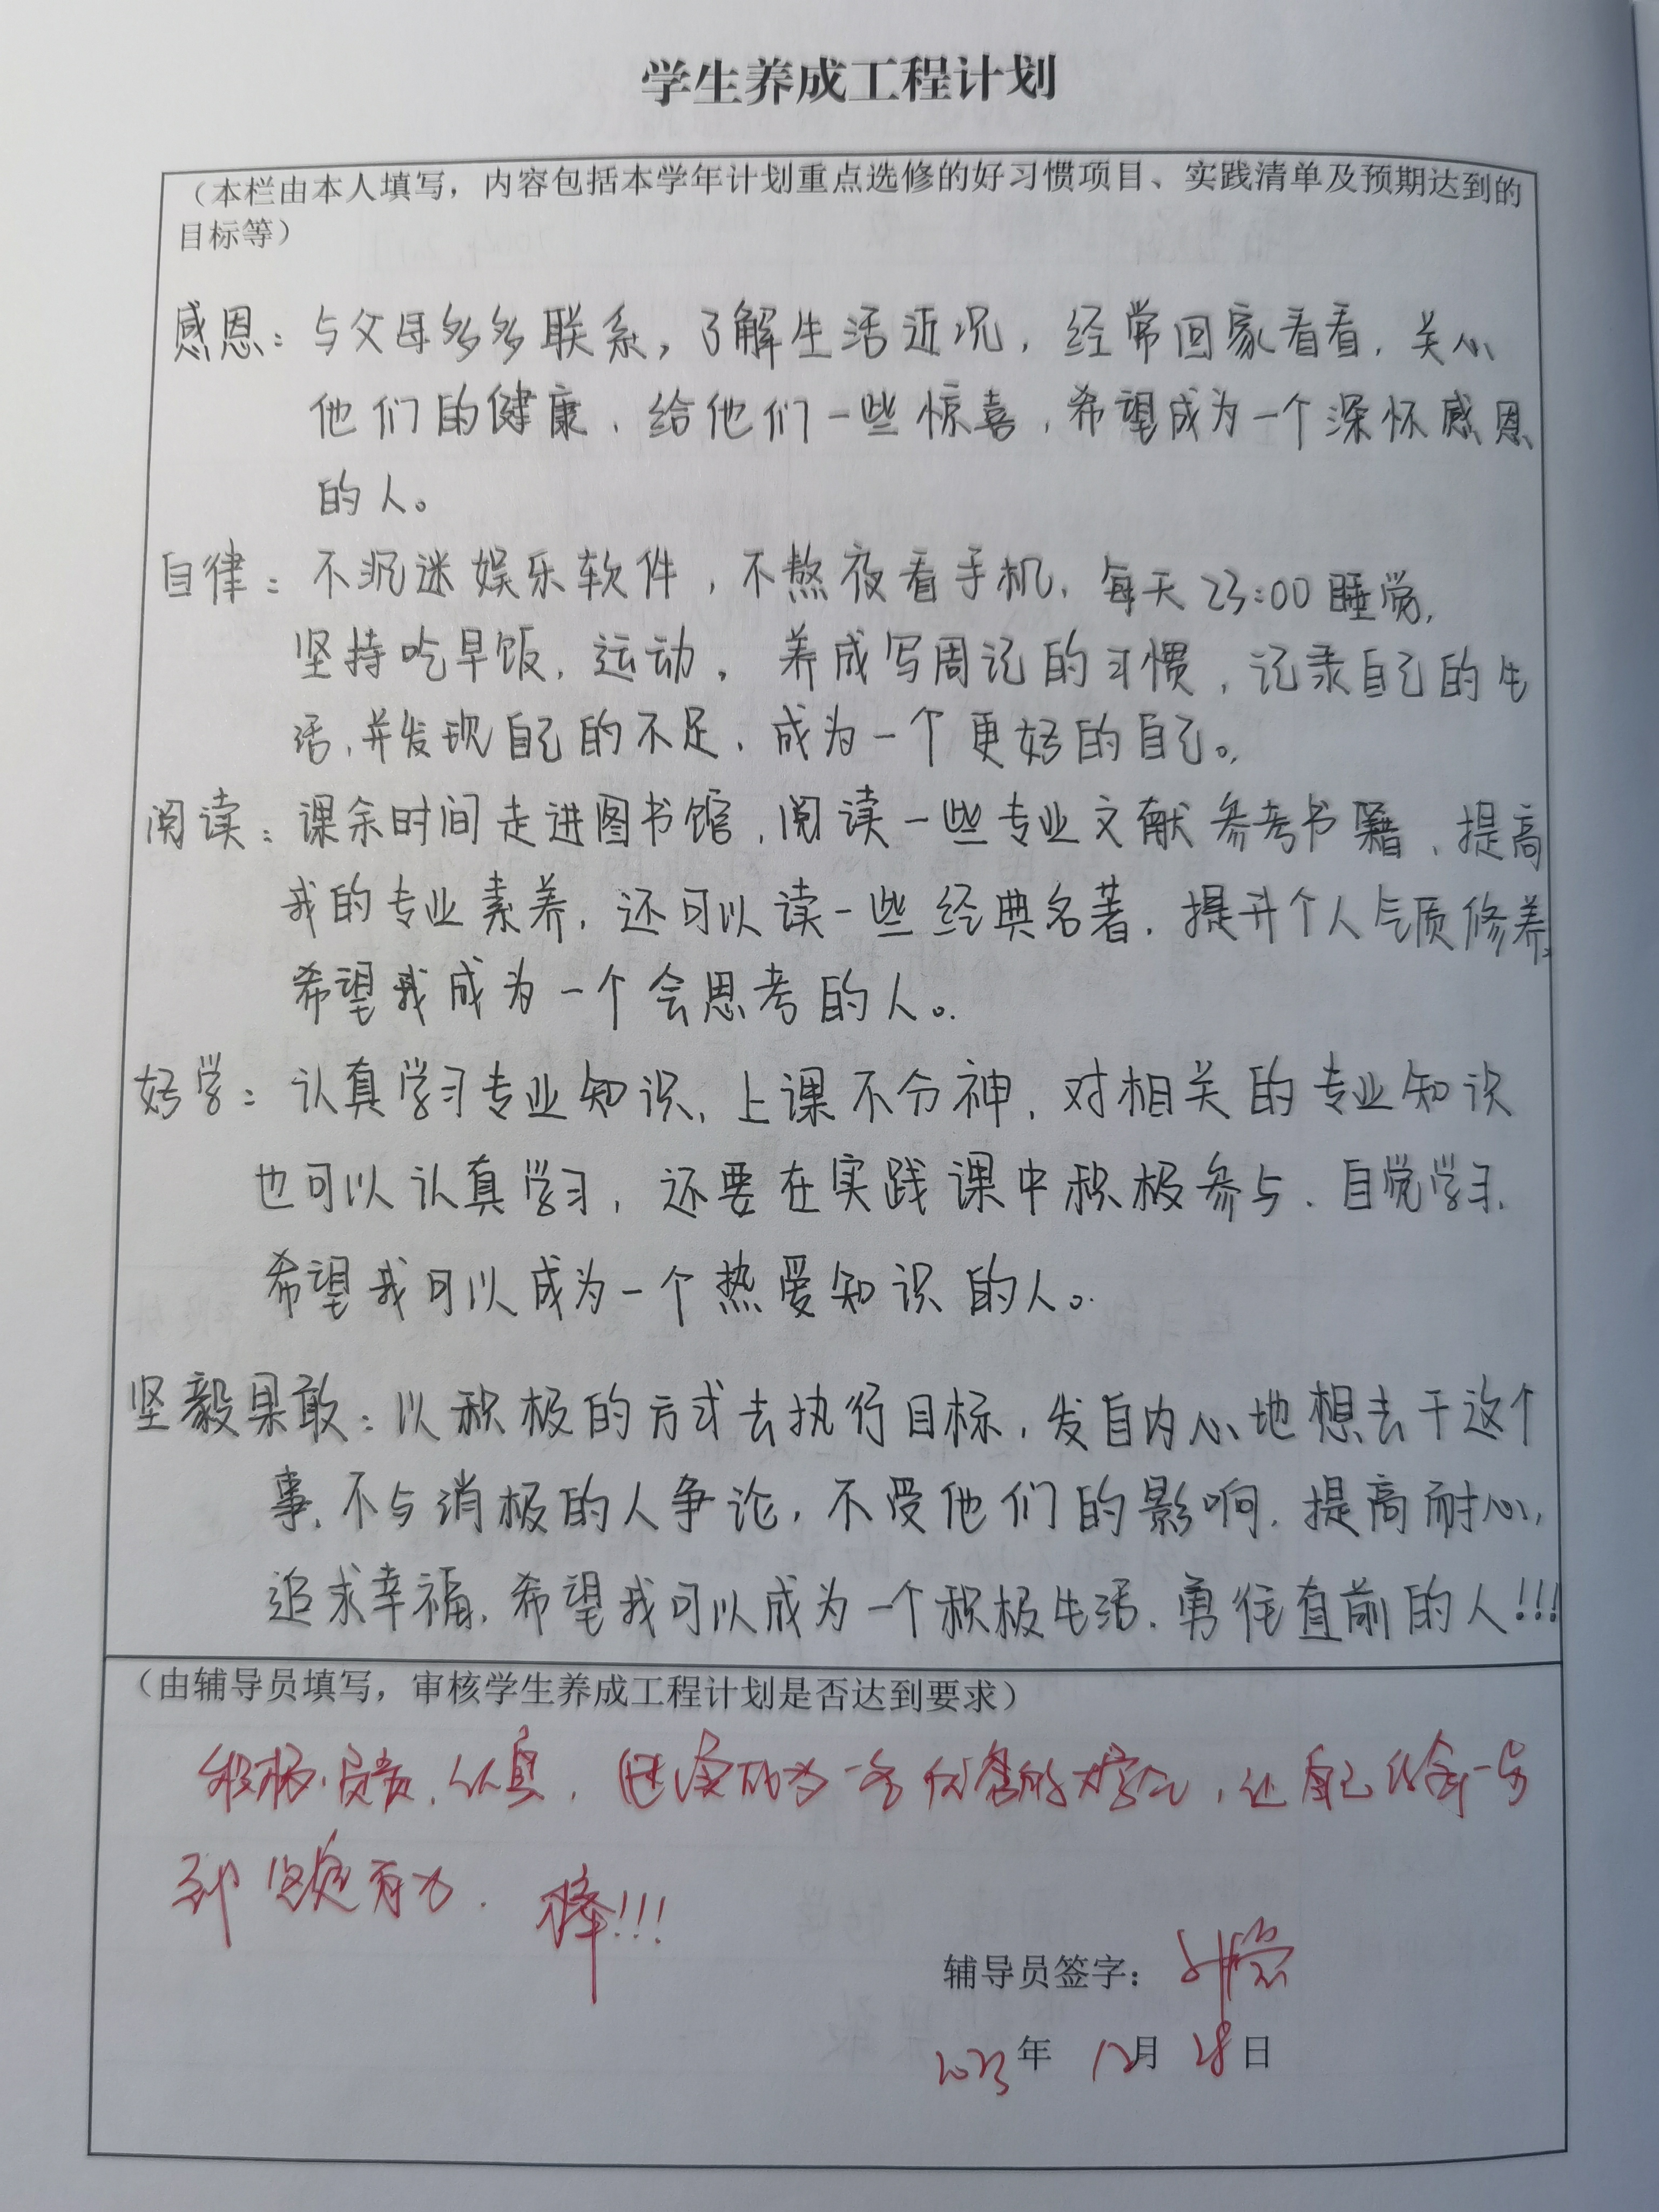 学生养成工程计划
（本栏由本人填写，内容包括本学年计划重点选修的好习惯项目、实践清单及预期达到的
目标等）
感恩：与父母多多联系，了解生活近况，经常回家看看，关心
他们的健康、给他们一些惊喜，希望成为一个深怀感恩
的人。
自律：不沉迷娱乐软件，不熬夜看手机，每天23:00睡觉，
坚持吃早饭，运动。养成写周记的习惯，记录自己的生
活，并发现自己的不足，成为一个更好的自己。
阅读：课余时间走进图书馆，阅读一些专业文献参考书籍，提高
我的专业素养，还可以读一些经典名著，提升个人气质修养，
希望我成为一个会思考的人。
好学：认真学习专业知识，上课不分神，对相关的专业知识
也可以认真学习，还要在实践课中积极参与、自觉学习，
希望我可以成为一个热爱知识的人。
坚毅果敢：以积极的方式去执行目标，发自内心地想去干这个
事，不与消极的人争论，不受他们的影响，提高耐心，
追求幸福，希望我可以成为一个积极生活、勇往直前的人!!!
（由辅导员填写，审核学生养成工程计划是否达到要求）
积极、负责、认真，成为一名优秀的大学生，让自己的每一步
都坚定有力. 棒!!!
辅导员签字：
2023年 12月 28日